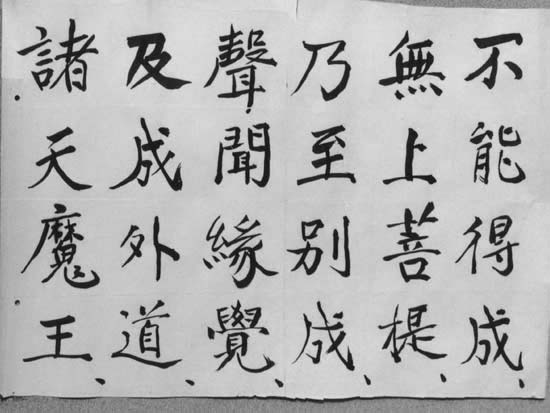 不能得成、
無上菩提、
乃至別成、
聲聞緣覺、
及成外道、
諸天魔王、